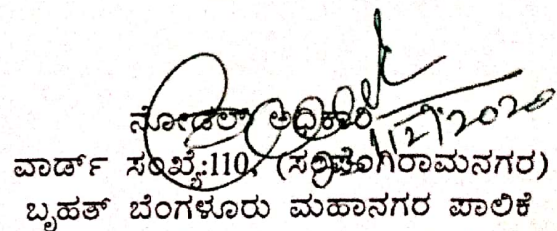 ನೋಡಲ್ ಅಧಿಕಾರಿ
ವಾರ್ಡ್ ಸಂಖ್ಯೆ:110, (ಸಂಪಂಗಿರಾಮನಗರ)
ಬೃಹತ್ ಬೆಂಗಳೂರು ಮಹಾನಗರ ಪಾಲಿಕೆ